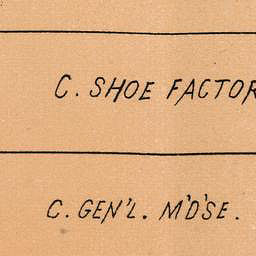 C. SHOE FACTOR
C. GEN'L. M'D'SE.